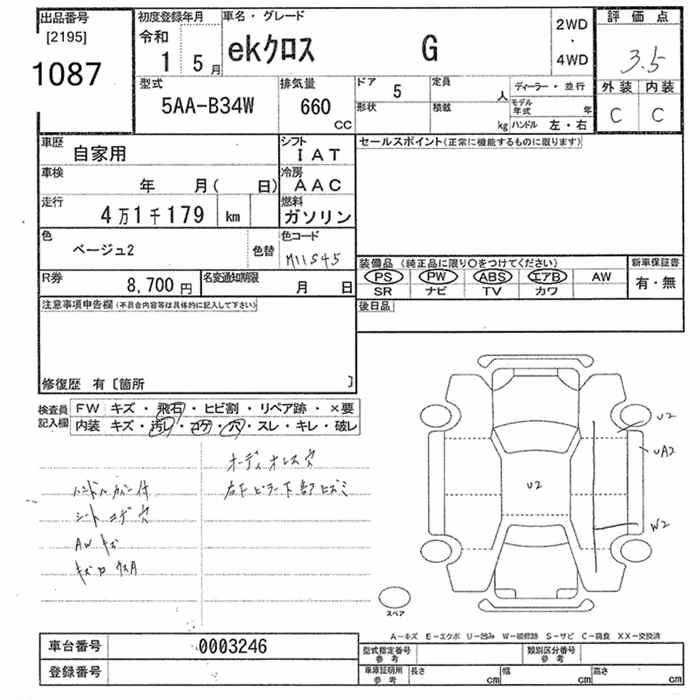 出品番号 初度登録年月 車名・グレード 2WD 評価点
[2195] 令和 ekクロス G ・ 3.5
1087 1 5 月 4WD 外装 内装
型式 排気量 ドア 5 定員 人 ディーラー・並行 C C
5AA-B34W 660 CC 形状 積載 kg モデル年式 年
ハンドル 左・右
車歴 自家用 シフト IAT セールスポイント(正常に機能するものに限ります)
車検 年 月( 日) 冷房 AAC
走行 4万1千179 km 燃料 ガソリン
色 ベージュ2 色替 色コード M11545
装備品 (純正品に限り○をつけてください) 新車保証書
PS PW ABS エアB AW 有・無
SR ナビ TV カワ
R券 8,700円 名変通知期限 月 日
注意事項申告欄(不具合内容等は具体的に記入して下さい) 後日品
修復歴 有〔箇所 〕
検査員記入欄 FW キズ・飛石・ヒビ割・リペア跡・×要
内装 キズ・汚レ・コゲ・穴・スレ・キレ・破レ
オーディオレス穴
右下ピラー下部ヒズミ
シート コゲ 穴
AW キズ
U2
UA2
U2
W2
スペア
A-キズ E-エクボ U-凹み W-補修跡 S-サビ C-腐食 XX-交換済
車台番号 0003246 型式指定番号 参考 類別区分番号 参考
登録番号 車庫証明所 参考 長さ cm 幅 cm 高さ cm